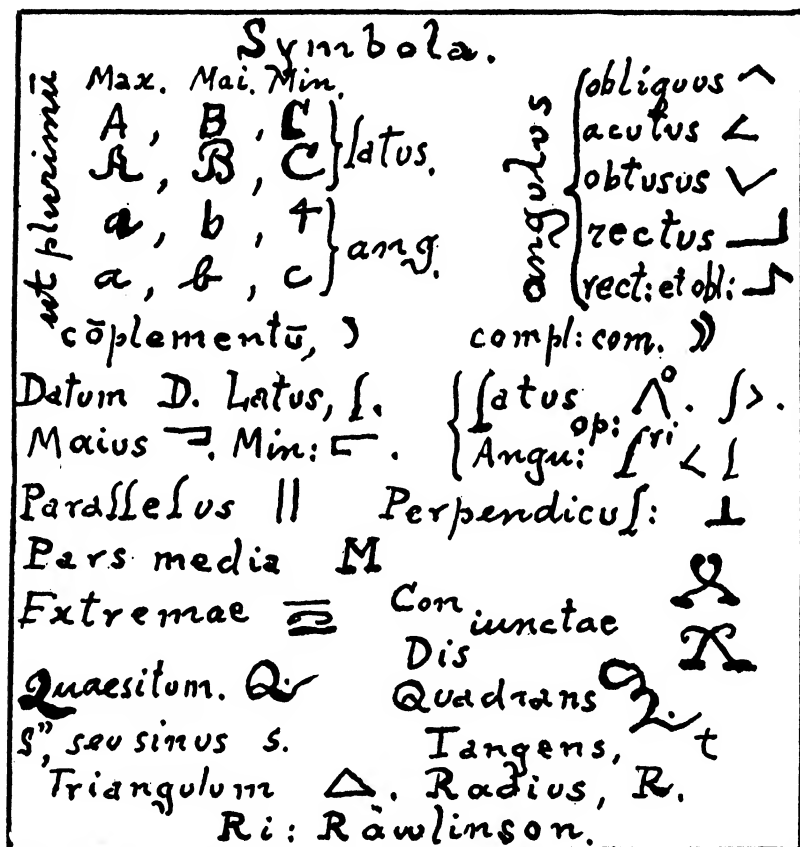 Symbola.
ut plurimū
Max. Mai. Min.
A, B, C } latus.
A, B, C
a, b, 4 } ang.
a, b, c
angulus
obliquus
acutus <
obtusus
rectus
rect: et obl:
cōplementū, )
compl: com. ))
Datum D. Latus, ſ.
Maius . Min: .
ſatus op: Λ°. ʃ>.
Angu: ſri < ſ
Paraſſeſus ||
Perpendicuſ: ⊥
Pars media M
Extremae
Con iunctae
Dis
Quaesitum. Q:
Quadrans Q.
s", seu sinus s.
Tangens, t
Triangulum △. Radius, R.
Ri: Rawlinson.